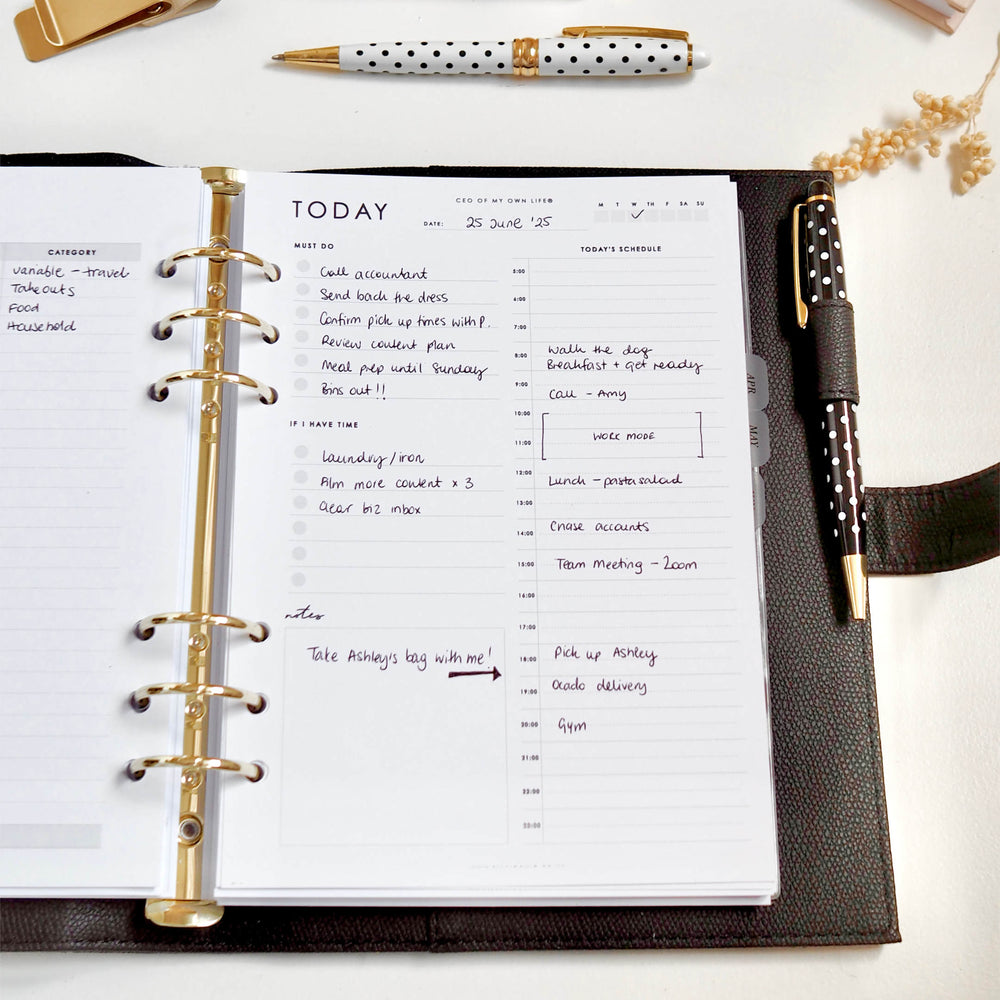 CATEGORY
variable - travel
Takeouts
Food
Household
TODAY
CEO OF MY OWN LIFE®
DATE: 25 June '25
M T W TH F SA SU
MUST DO
Call accountant
Send back the dress
Confirm pick up times with P.
Review content plan
Meal prep until Sunday
Bins out!!
IF I HAVE TIME
Laundry/iron
Film more content x 3
Clear biz inbox
notes
Take Ashley's bag with me!
TODAY'S SCHEDULE
5:00
6:00
7:00
8:00 Walk the dog
Breakfast + get ready
9:00
Call - Amy
10:00
WORK MODE
11:00
12:00 Lunch - pasta salad
13:00
Chase accounts
14:00
15:00 Team meeting - Zoom
16:00
17:00
18:00 Pick up Ashley
19:00 Ocado delivery
20:00 Gym
21:00
22:00
23:00
APR
MAY